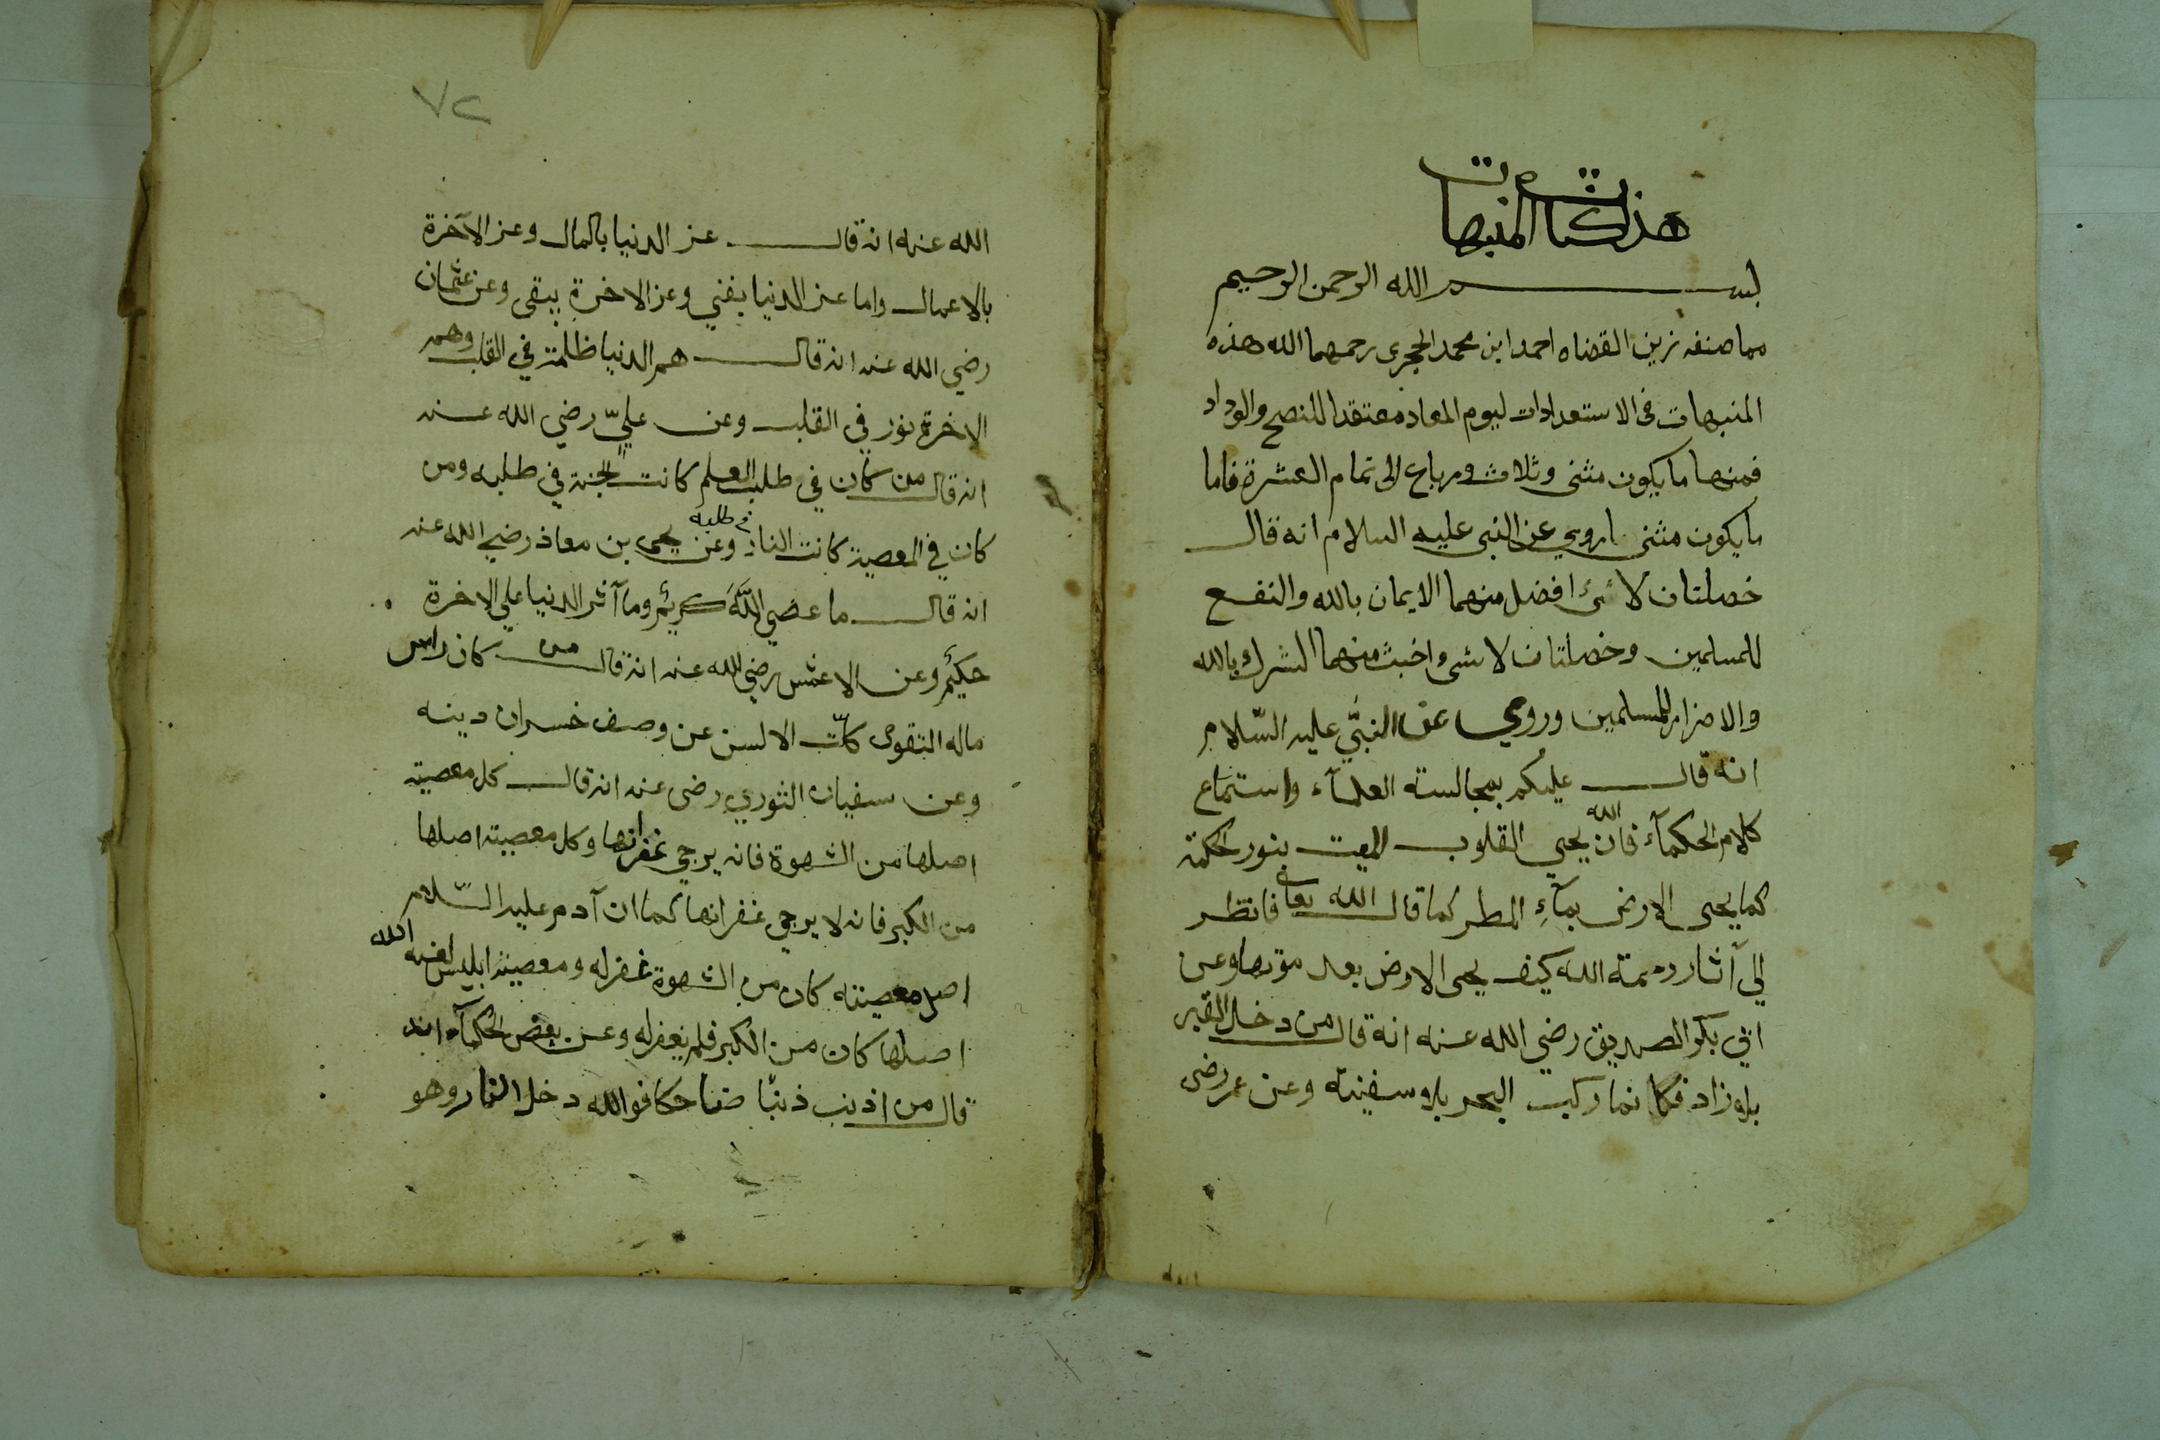 هذا كتاب المنبهات
بسم الله الرحمن الرحيم
مما صنفه زين القضاه احمد ابن محمد الحجري رحمهما الله هذه
المنبهات فى الاستعدادات ليوم المعاد معتقدا للنصح والوداد
فمنها ما يكون مثنى وثلاث ورباع الى تمام العشرة فاما
ما يكون مثنى ما روي عن النبى عليه السلام انه قال
خصلتان لا شئ افضل منهما الايمان بالله والنفع
للمسلمين وخصلتان لا شىء اخبث منهما الشرك بالله
والاضرار للمسلمين وروي عن النبّي عليه السّلام
انه قال عليكم بمجالسته العلمآء واستماع
كلام الحكمآء فان الله يحيي القلوب الميت بنور الحكمة
كما يحيى الارض بمآءِ المطر كما قال الله تعا فانظر
الي آثار رحمته الله كيف يحى الارض بعد موتها وعن
ابي بكر الصديق رضي الله عنه انه قال من دخل القبر
بلا زاد فكانما ركب البحر بلا سفينة وعن عمر رضى
٧٢
الله عنه انه قال عز الدنيا بالمال وعز الآخرة
بالاعمال واما عز الدنيا يفني وعز الاخرة يبقى وعن عثمان
رضي الله عنه انه قال هم الدنيا ظلمة في القلب وهم
الاخرة نور في القلب وعن عليّ رضي الله عنه
انه قال من كان في طلب العلم كانت الجنة في طلبه ومن
كان في المعصية كانت النار في طلبه وعن يحيى بن معاذ رضي الله عنه
انه قال ما عصي اللهَ كريمٌ وما آثر الدنيا علي الاخرة
حكيمٌ وعن الاعمش رضي الله عنه انه قال من كان راس
ماله التقوى كلّت الالسن عن وصف خسران دينه
وعن سفيان الثوري رضى عنه انه قال كل معصية
اصلها من الشهوة فانه يرجي غفرانها وكل معصية اصلها
من الكبر فانه لا يرجى غفرانها كما ان آدم عليه السّلام
اصل معصيته كان من الشهوة غفر له ومعصية ابليس لعنه الله
اصلها كان من الكبر فلم يغفر له وعن بعض الحكمآء انه
قال من اذنب ذنبًا ضاحكا فوالله دخل النار وهو